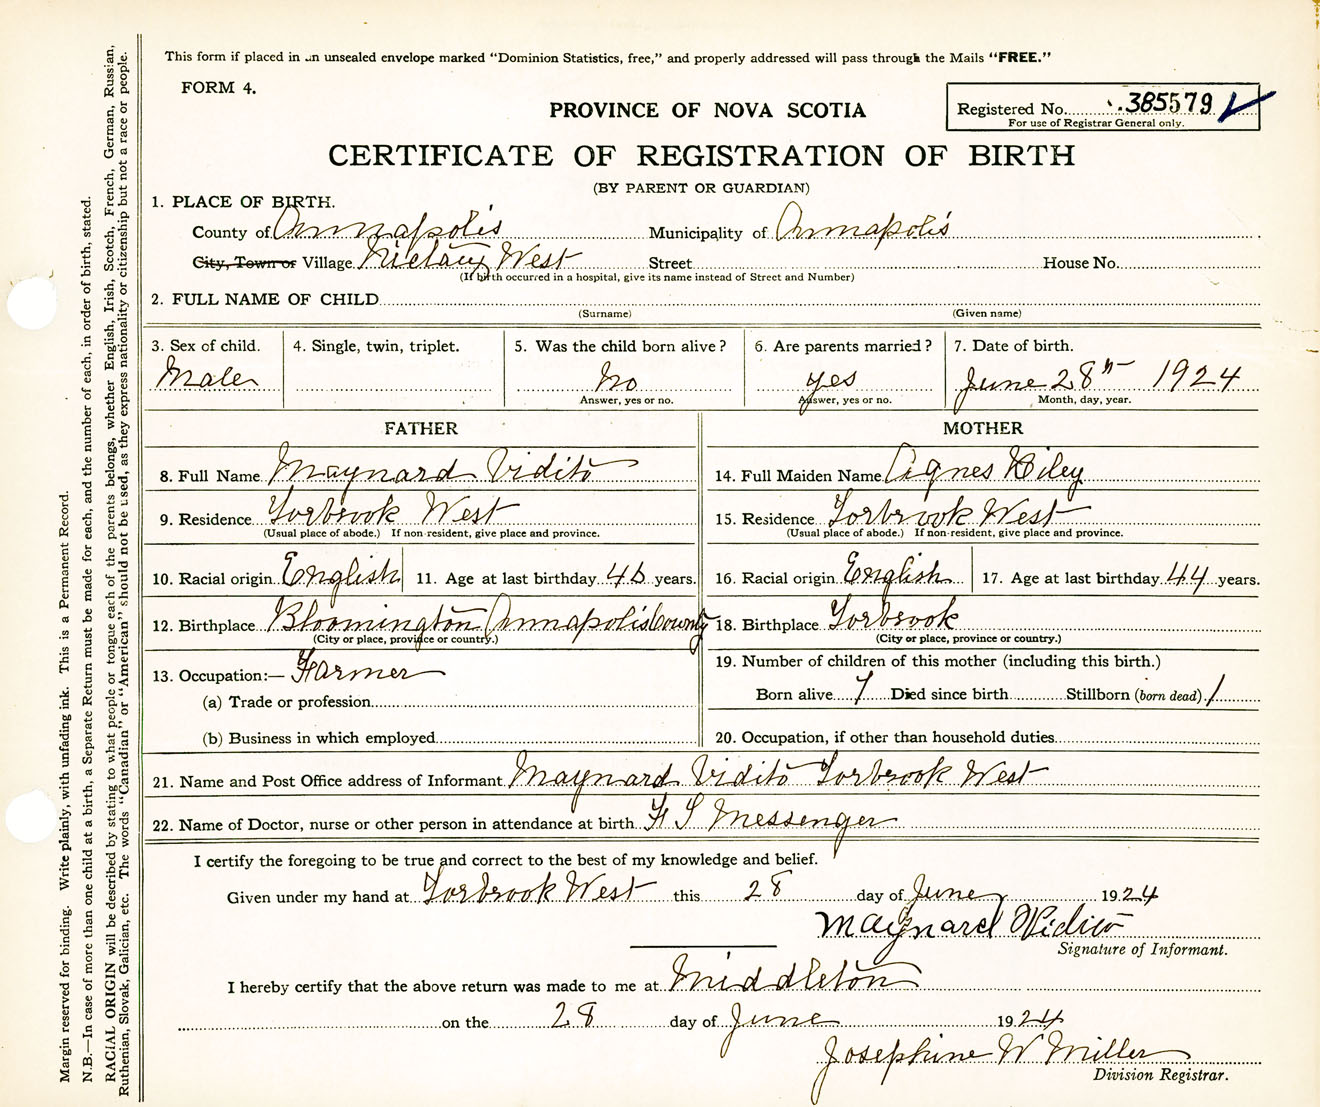 This form if placed in an unsealed envelope marked "Dominion Statistics, free," and properly addressed will pass through the Mails "FREE."
FORM 4.
PROVINCE OF NOVA SCOTIA
Registered No. 385579
For use of Registrar General only.
CERTIFICATE OF REGISTRATION OF BIRTH
(BY PARENT OR GUARDIAN)
1. PLACE OF BIRTH.
County of Annapolis Municipality of Annapolis
City, Town or Village Nictaux West Street House No.
(If birth occurred in a hospital, give its name instead of Street and Number)
2. FULL NAME OF CHILD
(Surname) (Given name)
3. Sex of child. 4. Single, twin, triplet. 5. Was the child born alive? 6. Are parents married? 7. Date of birth.
Male No yes June 28th 1924
Answer, yes or no. Answer, yes or no. Month, day, year.
FATHER MOTHER
8. Full Name Maynard Vidito 14. Full Maiden Name Agnes Riley
9. Residence Torbrook West 15. Residence Torbrook West
(Usual place of abode.) If non-resident, give place and province. (Usual place of abode.) If non-resident, give place and province.
10. Racial origin English 11. Age at last birthday years. 16. Racial origin English 17. Age at last birthday 44 years.
12. Birthplace Bloomington Annapolis County 18. Birthplace Torbrook
(City or place, province or country.) (City or place, province or country.)
13. Occupation:— Farmer 19. Number of children of this mother (including this birth.)
(a) Trade or profession Born alive 7 Died since birth Stillborn (born dead) 1
(b) Business in which employed 20. Occupation, if other than household duties
21. Name and Post Office address of Informant Maynard Vidito Torbrook West
22. Name of Doctor, nurse or other person in attendance at birth F S Messenger
I certify the foregoing to be true and correct to the best of my knowledge and belief.
Given under my hand at Torbrook West this 28 day of June 1924
Maynard Vidito
Signature of Informant.
I hereby certify that the above return was made to me at Middleton
on the 28 day of June 1924
Josephine W Miller
Division Registrar.
Margin reserved for binding. Write plainly, with unfading ink. This is a Permanent Record.
N.B.—In case of more than one child at a birth, a Separate Return must be made for each, and the number of each, in order of birth, stated.
RACIAL ORIGIN will be described by stating to what people or tongue each of the parents belongs, whether English, Irish, Scotch, French, German, Russian,
Ruthenian, Slovak, Galician, etc. The words "Canadian" or "American" should not be used, as they express nationality or citizenship but not a race or people.